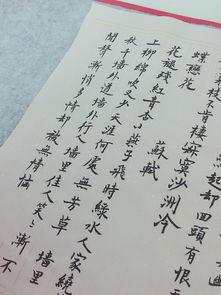 起却回頭有恨
枝不肯棲寂寞沙洲冷
蝶戀花 蘇軾
花褪残红青杏小燕子飛時綠水人家繞
上柳綿吹又少天涯何處無芳草墙里
秋千墙外道墙外行人墙里佳人笑笑漸不
聞聲漸悄多情却被無情惱